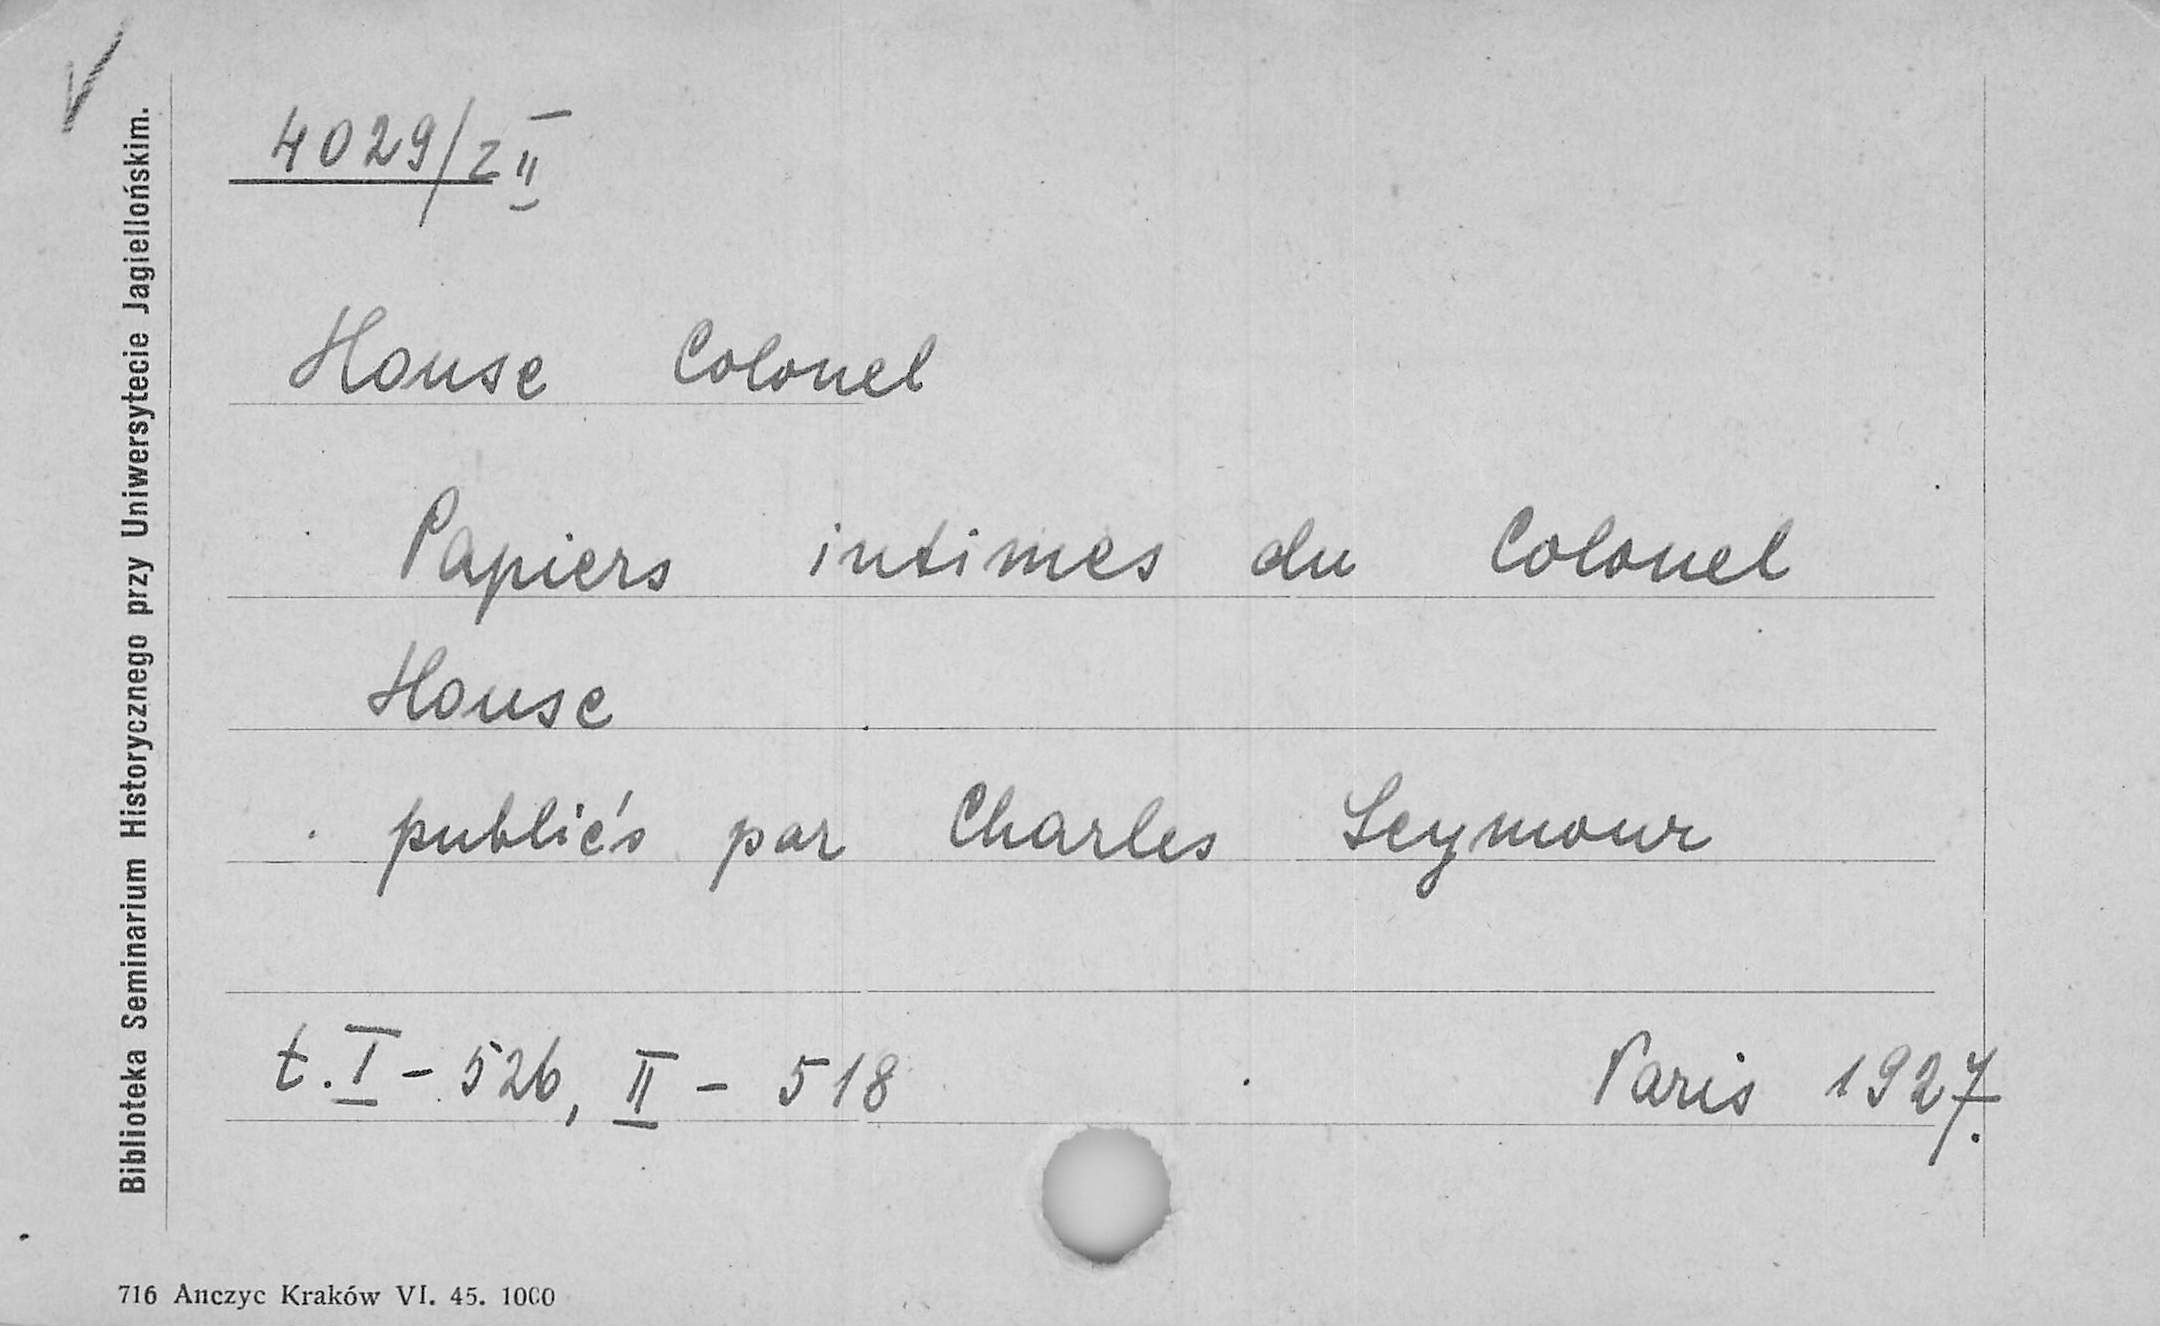 4029/z II
House Colonel
Papiers intimes du Colonel
House
publiés par Charles Seymour
t. I - 526, II - 518 Paris 1927.
Biblioteka Seminarium Historycznego przy Uniwersytecie Jagiellońskim.
716 Anczyc Kraków VI. 45. 1000